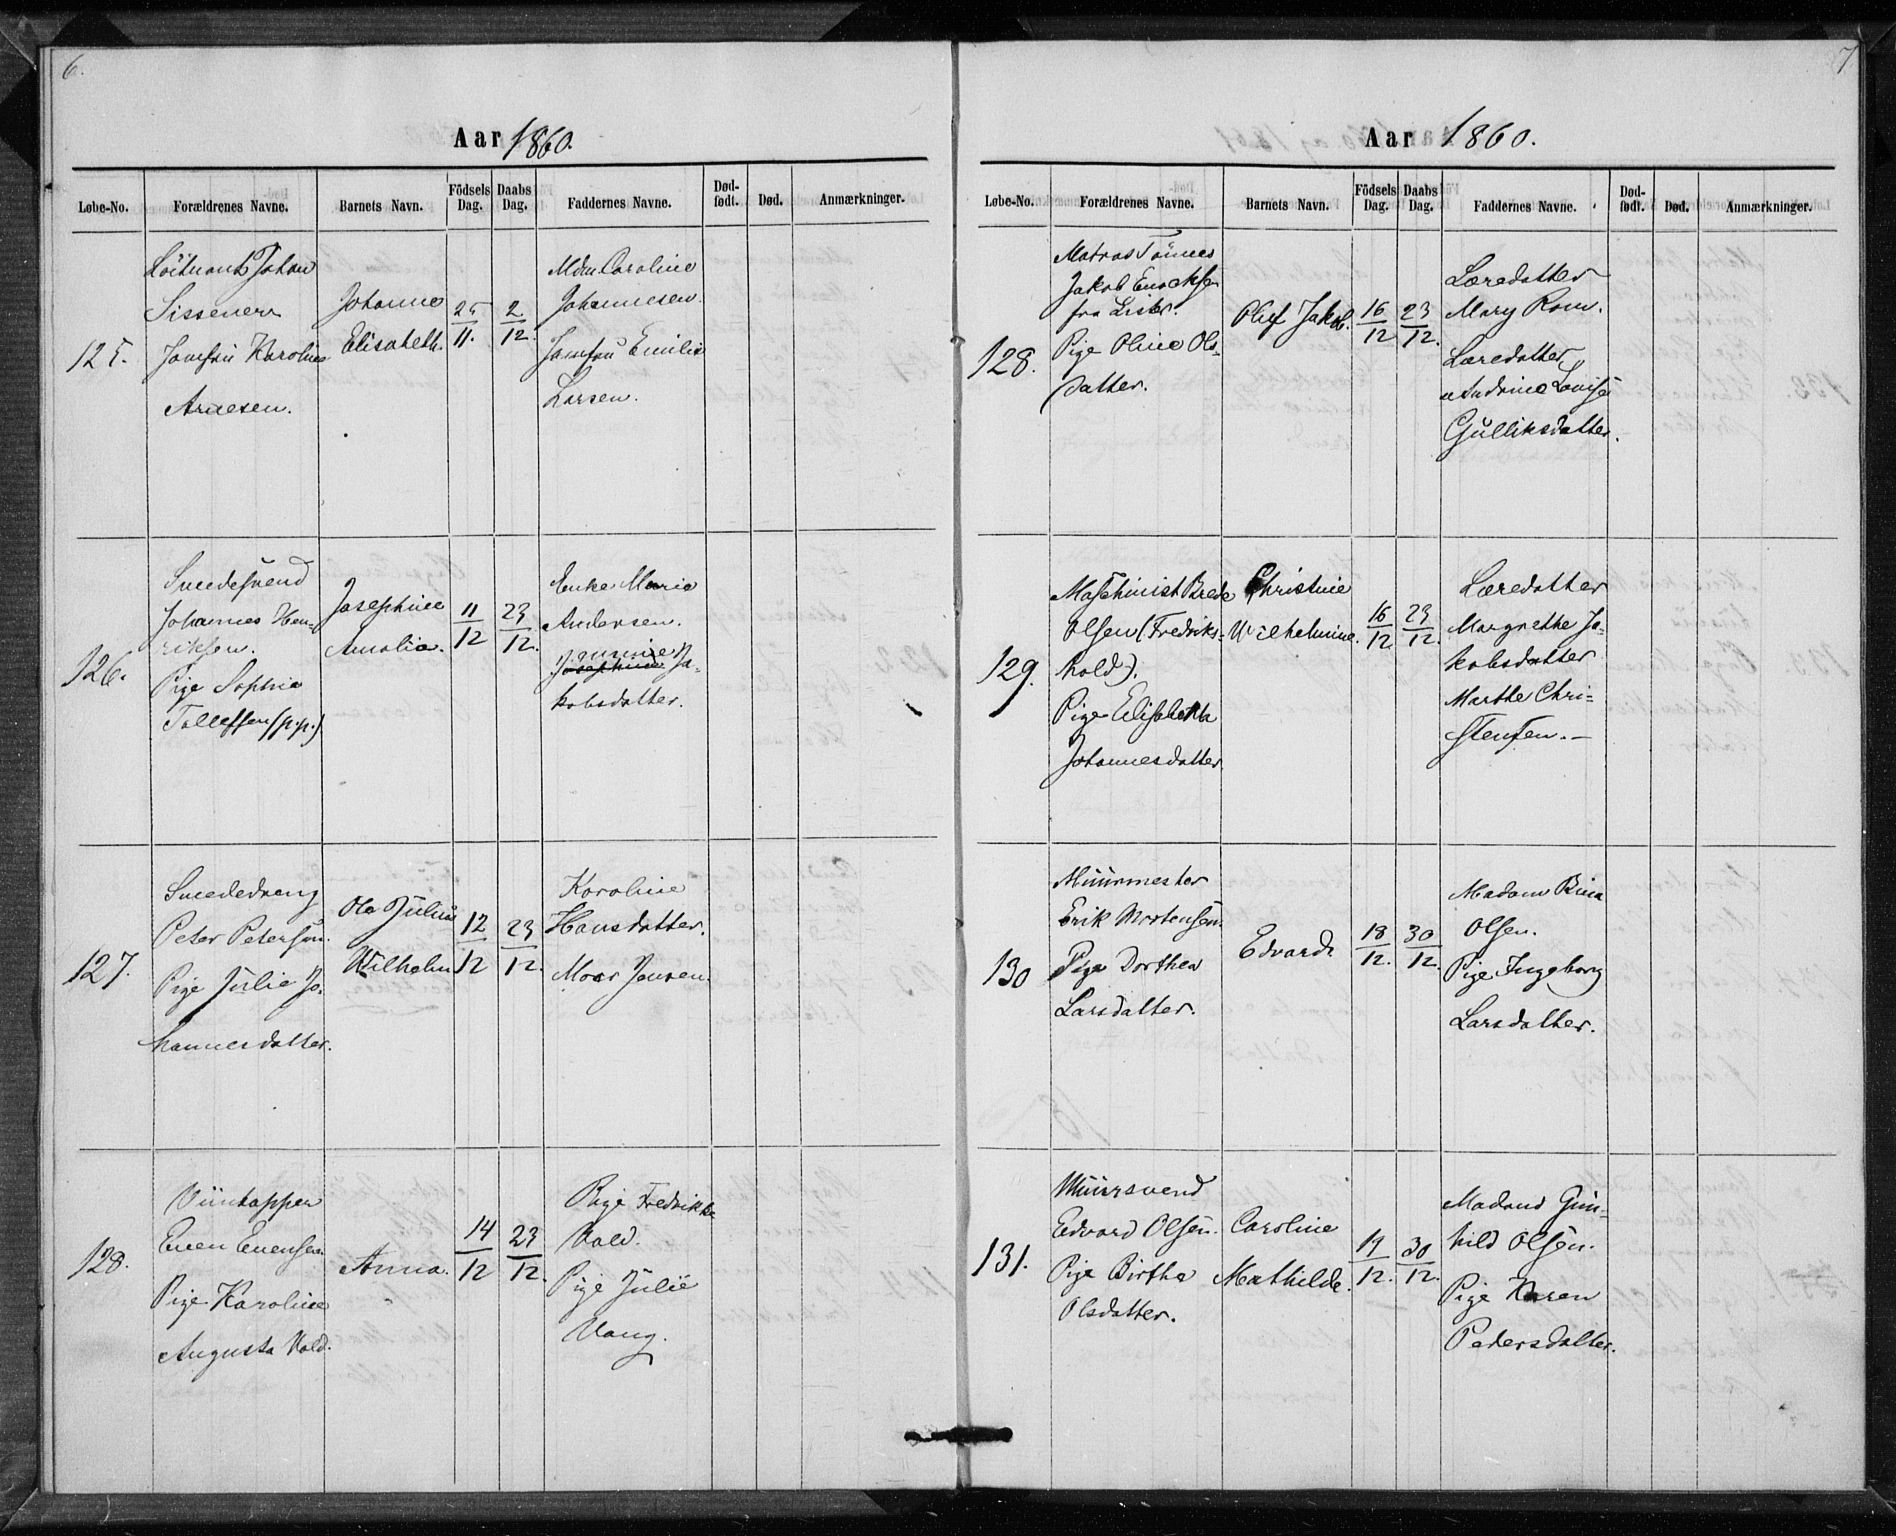 6.
Aar 1860.
Løbe-No. Forældrenes Navne. Barnets Navn. Födsels Dag. Daabs Dag. Faddernes Navne. Død-født. Død. Anmærkninger.
125.
Löitnant Johan
Sissener
Jomfru Karoline
Arnesen.
Johanne
Elisabeth.
25/11.
2/12.
Mdm Caroline
Johannesen.
Jomfru Emilie
Larsen.
126.
Smedesvend
Johannes Hen-
riksen.
Pige Sophie
Tollefsen (p.p.)
Josephine
Amalia.
11/12
23/12.
Enke Maria
Andersen.
Josephine Ja-
kobsdatter.
127.
Smededreng
Peter Petersen.
Pige Julie Jo-
hannesdatter.
Ole Julius
Wilhelm
12/12
23/12.
Karoline
Hansdatter.
Moer Jensen.
128.
Viintapper
Even Evensen
Pige Karoline
Augusta Vold.
Anna.
14/12
23/12.
Pige Fredrikke
Vold.
Pige Julie
Vang.
7
Aar 1860.
Løbe-No. Forældrenes Navne. Barnets Navn. Födsels Dag. Daabs Dag. Faddernes Navne. Død-født. Død. Anmærkninger.
128.
Matros Tönnes
Jakob Enochsen
fra Lister.
Pige Oline Ols-
datter.
Oluf Jakob.
16/12
23/12.
Læredatter
Mary Rom.
Læredatter
Andrine Louise
Gulliksdatter.
129.
Maschinist Brede
Olsen (Fredriks-
hold).
Pige Elisabeth
Johannesdatter.
Christine
Wilhelmine.
16/12
23/12.
Læredatter
Margrethe Ja-
kobsdatter
Marthe Chri-
stensen. –
130
Muurmester
Erik Mortensen.
Pige Dorthea
Larsdatter.
Edvard
18/12.
30/12.
Madam Rina
Olsen.
Pige Ingeborg
Larsdatter.
131.
Muursvend
Edvard Olsen.
Pige Birthe
Olsdatter.
Caroline
Mathilde.
19/12.
30/12.
Madam Gun-
hild Olsen.
Pige Karen
Pedersdatter.